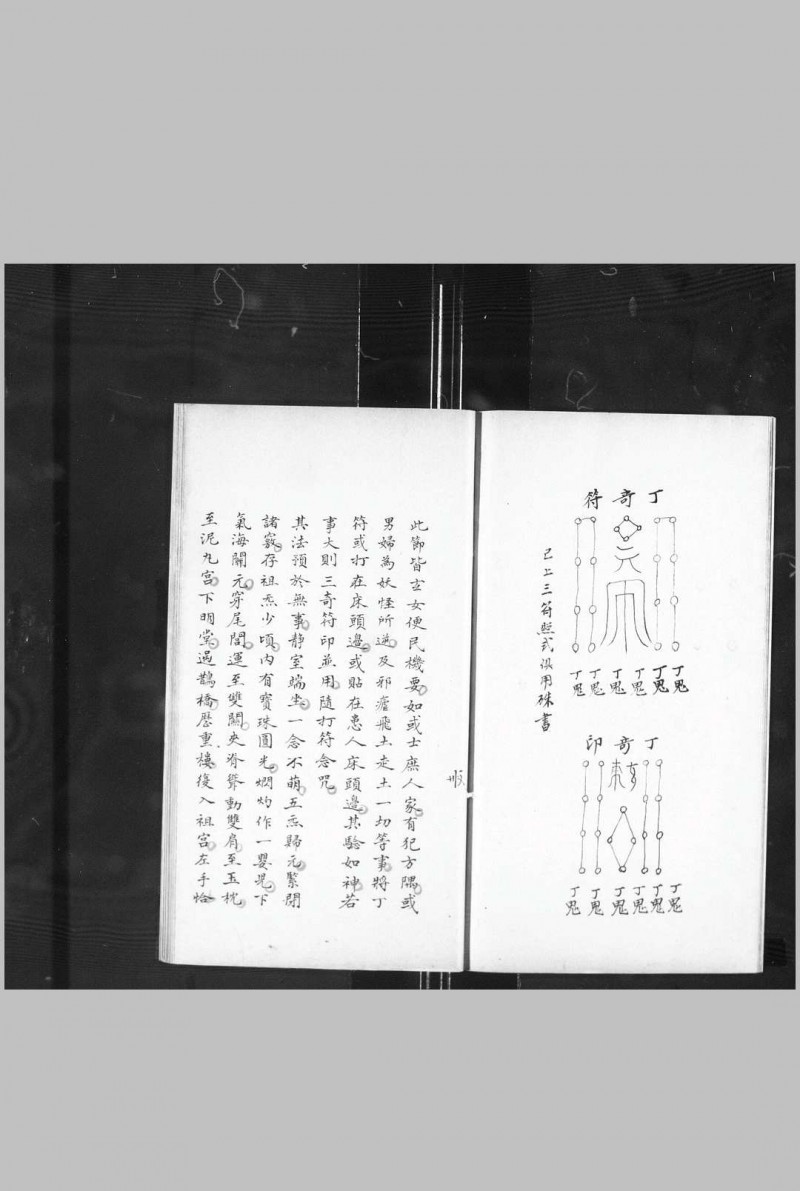 丁奇符
丁鬼 丁鬼 丁鬼 丁鬼 丁鬼 丁鬼
已上三符照式俱用硃書
丁奇印
丁鬼 丁鬼 丁鬼 丁鬼 丁鬼 丁鬼
此節皆玄女便民機要如或士庶人家有犯方隅或
男婦為妖怪所迷及邪瘡飛土走土一切等事將丁
符或打在床頭邊或貼在患人床頭邊其驗如神若
事大則三奇符印並用隨打符念咒
其法預於無事静室端坐一念不萌五炁歸元緊閉
諸竅存祖炁少頃内有寶珠圓光烱灼作一嬰児下
氣海關元穿尾閭運至雙關夾脊聳動雙肩至玉枕
至泥九宮下明堂過鵲橋歷重樓復入祖宮左手恰